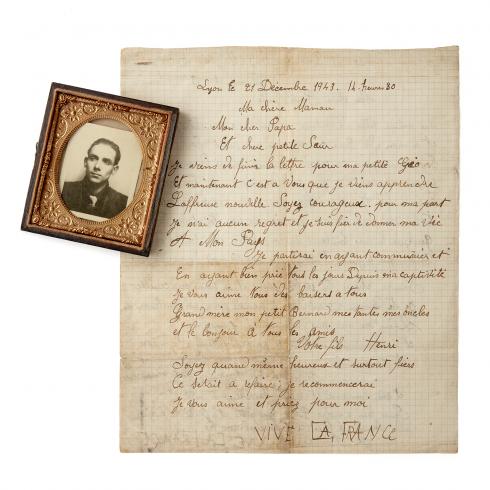 Lyon le 21 Décembre 1943. 14 heures 30
Ma chère Maman
Mon cher Papa
Et chere petite Sœur
Je viens de finir la lettre pour ma petite Géo
Et maintenant c'est a Vous que je viens apprendre
L'affreuse nouvelle. Soyez courageux. pour ma part
Je n'ai aucun regret et je suis fier de donner ma Vie
A Mon Pays
Je partirai en ayant communier et
En ayant bien prié tous les jours Depuis ma captivité
Je vous aime tous des baisers a tous
Grand mère mon petit Bernard mes tantes mes oncles
et le bonjour à tous les amis
Votre fils Henri
Soyez quand même heureux et surtout fiers
Ce serait a refaire; je recommencerai
Je vous aime et priez pour moi
VIVE LA FRANCE